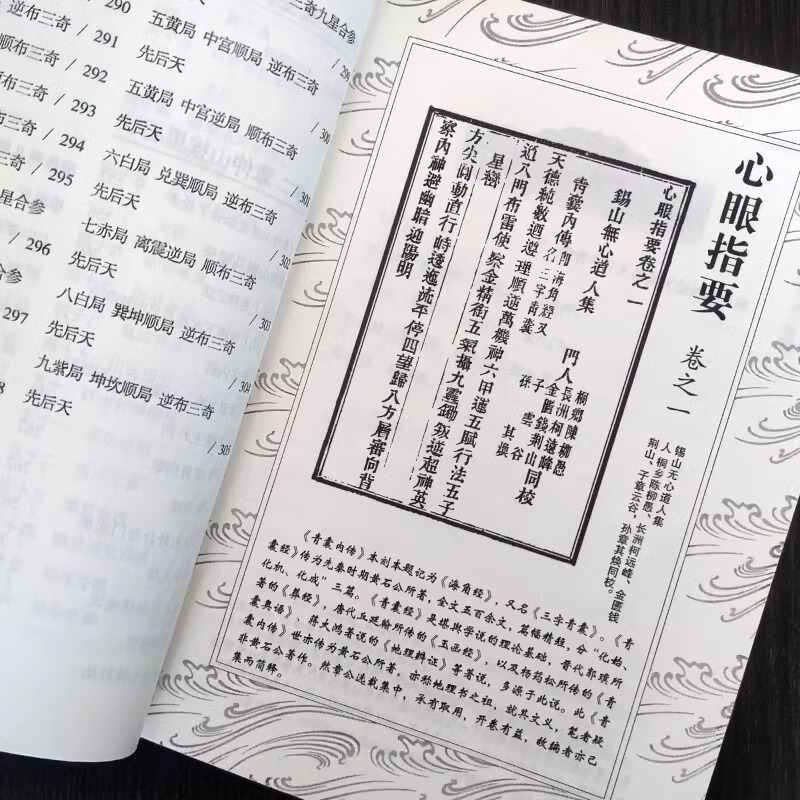 290
三奇九星合参
逆布三奇 / 291
五黄局 中宫顺局 逆布三奇
先后天
顺布三奇 / 292
/ 300
逆布三奇 / 293
五黄局 中宫逆局 顺布三奇
先后天
/ 294
/ 301
六白局 兑巽顺局 逆布三奇
/ 295
先后天
/ 302
星合参
七赤局 离震逆局 顺布三奇
/ 296
先后天
/ 303
合参
八白局 巽坤顺局 逆布三奇
/ 297
先后天
/ 304
九紫局 坤坎顺局 逆布三奇
先后天
/ 305
心眼指要
卷之一
锡山无心道人集
人 桐乡陈柳愚、长洲柯远峰、金匮钱
荆山、子章云谷，孙章其焕同校。
心眼指要卷之一
錫山無心道人集
桐鄉陳柳愚
門人長洲柯遠峰同校
金匱錢荆山
子 雲谷
孫 其煥
青囊內傳即海角經又名三字青囊
天德純數酒遵理順逆萬機神六甲運五賦行法五子
近八門布雷使 金精銜五氣攝九靈鋤叛逆超神英
星巒
方尖圓動直行峙透迤流平停四望歸八方層審向背
察內神避幽暗迎陽明
《青囊内传》本刘本题记为《海角经》，又名《三字青囊》。《青
囊经》传为先秦时期黄石公所著，全文五百余文，篇幅精短，分“化始、
化机、化成”三篇。《青囊经》是堪舆学说的理论基础，晋代郭璞所
著的《葬经》，唐代丘延翰所传的《玉函经》，以及杨筠松所传的《青
囊奥语》、蒋大鸿著说的《地理辨证》等著说，多源于此说。此《青
囊内传》世亦传为黄石公所著，亦称地理书之祖，就其文义，笔者疑
非黄石公著作。然章公选载集中，承有取用，开卷有益，故编者亦已
集而简释。